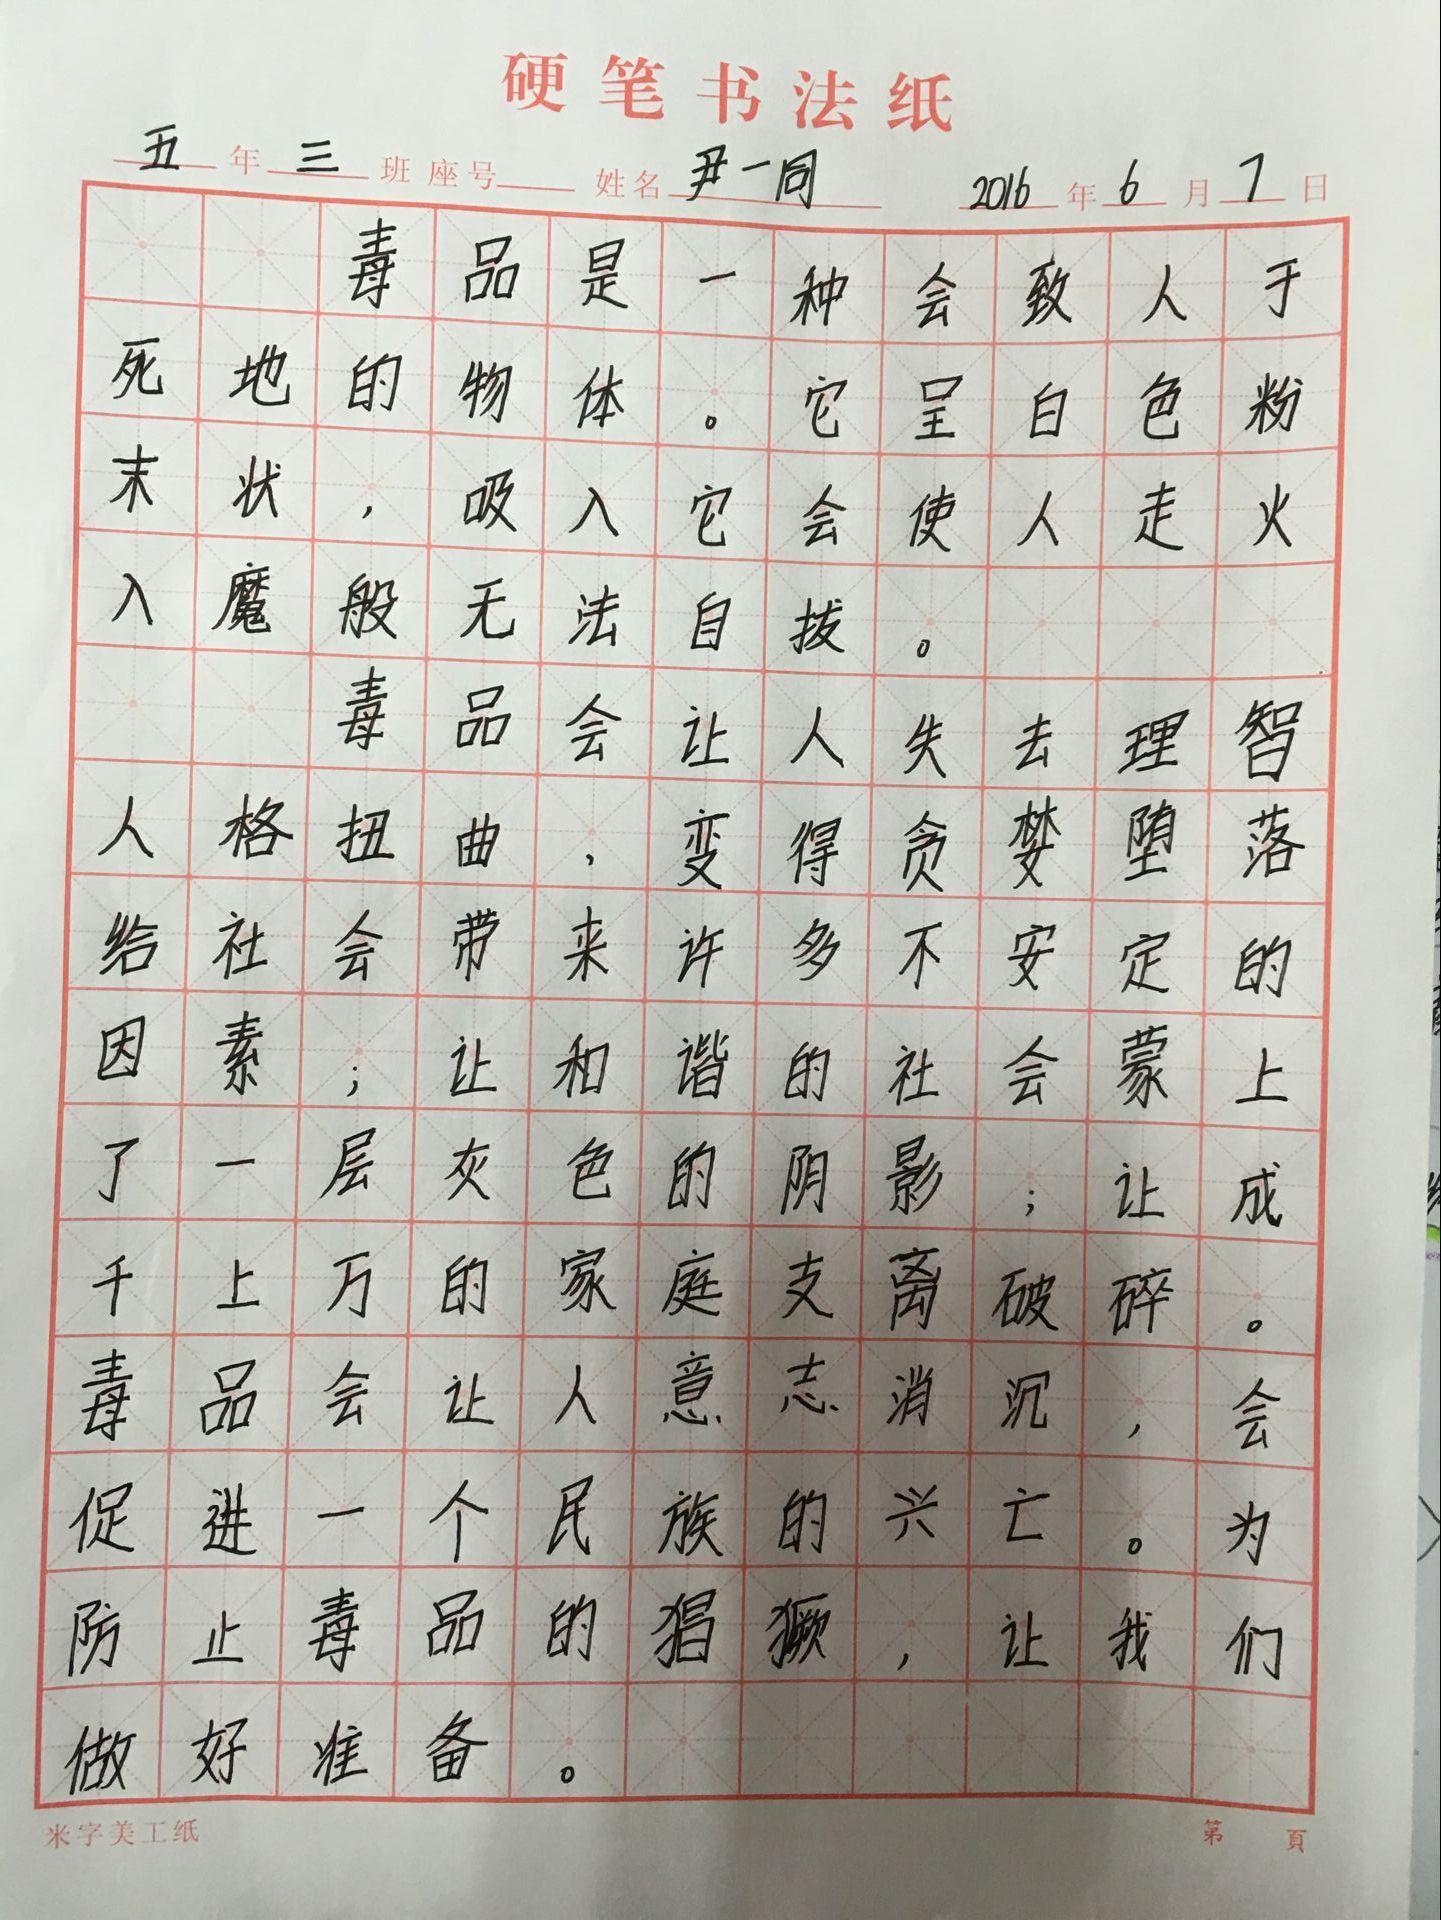 硬笔书法纸
五年三班 座号 姓名 尹一同 2016年6月7日
毒品是一种会致人于
死地的物体。它呈白色粉
末状，吸入它会使人走火
入魔般无法自拔。
毒品会让人失去理智
人格扭曲，变得贪婪堕落
给社会带来许多不安定的
因素；让和谐的社会蒙上
了一层灰色的阴影；让成
千上万的家庭支离破碎。
毒品会让人意志消沉，会
促进一个民族的兴亡。为
防止毒品的猖獗，让我们
做好准备。
米字美工纸 第 頁